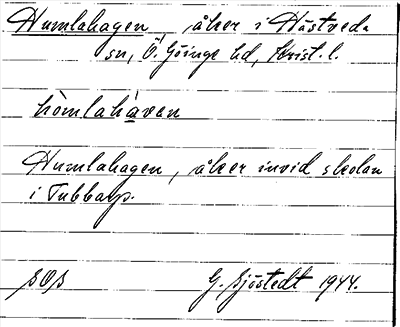 Humlahagen, åker i Hästveda
sn, Ö. Göinge hd, Krist. l.
hòmlahàven
Humlahagen, åker invid skolan
i Tubbarp.
G. Sjöstedt 1944.